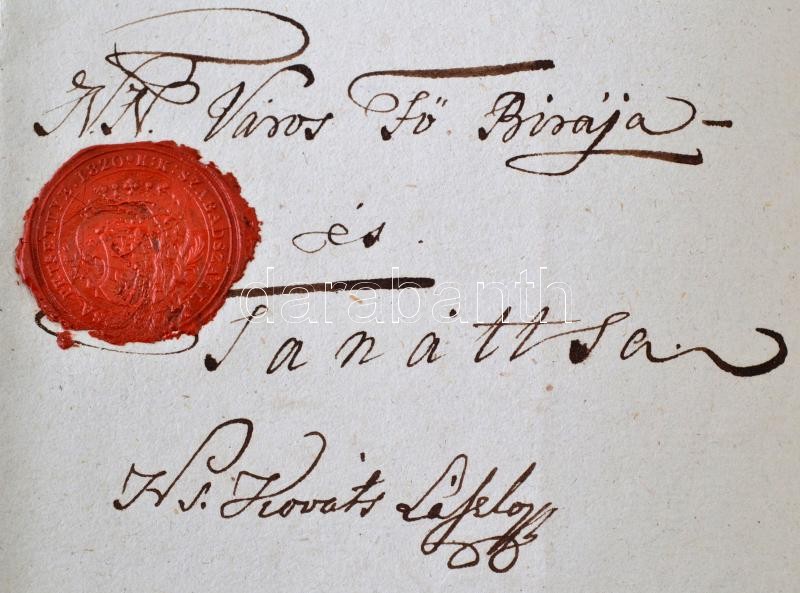 N. N. Város Fő Birája –
és
Tanáttsa
Ns. Kováts László
1820
darabanth